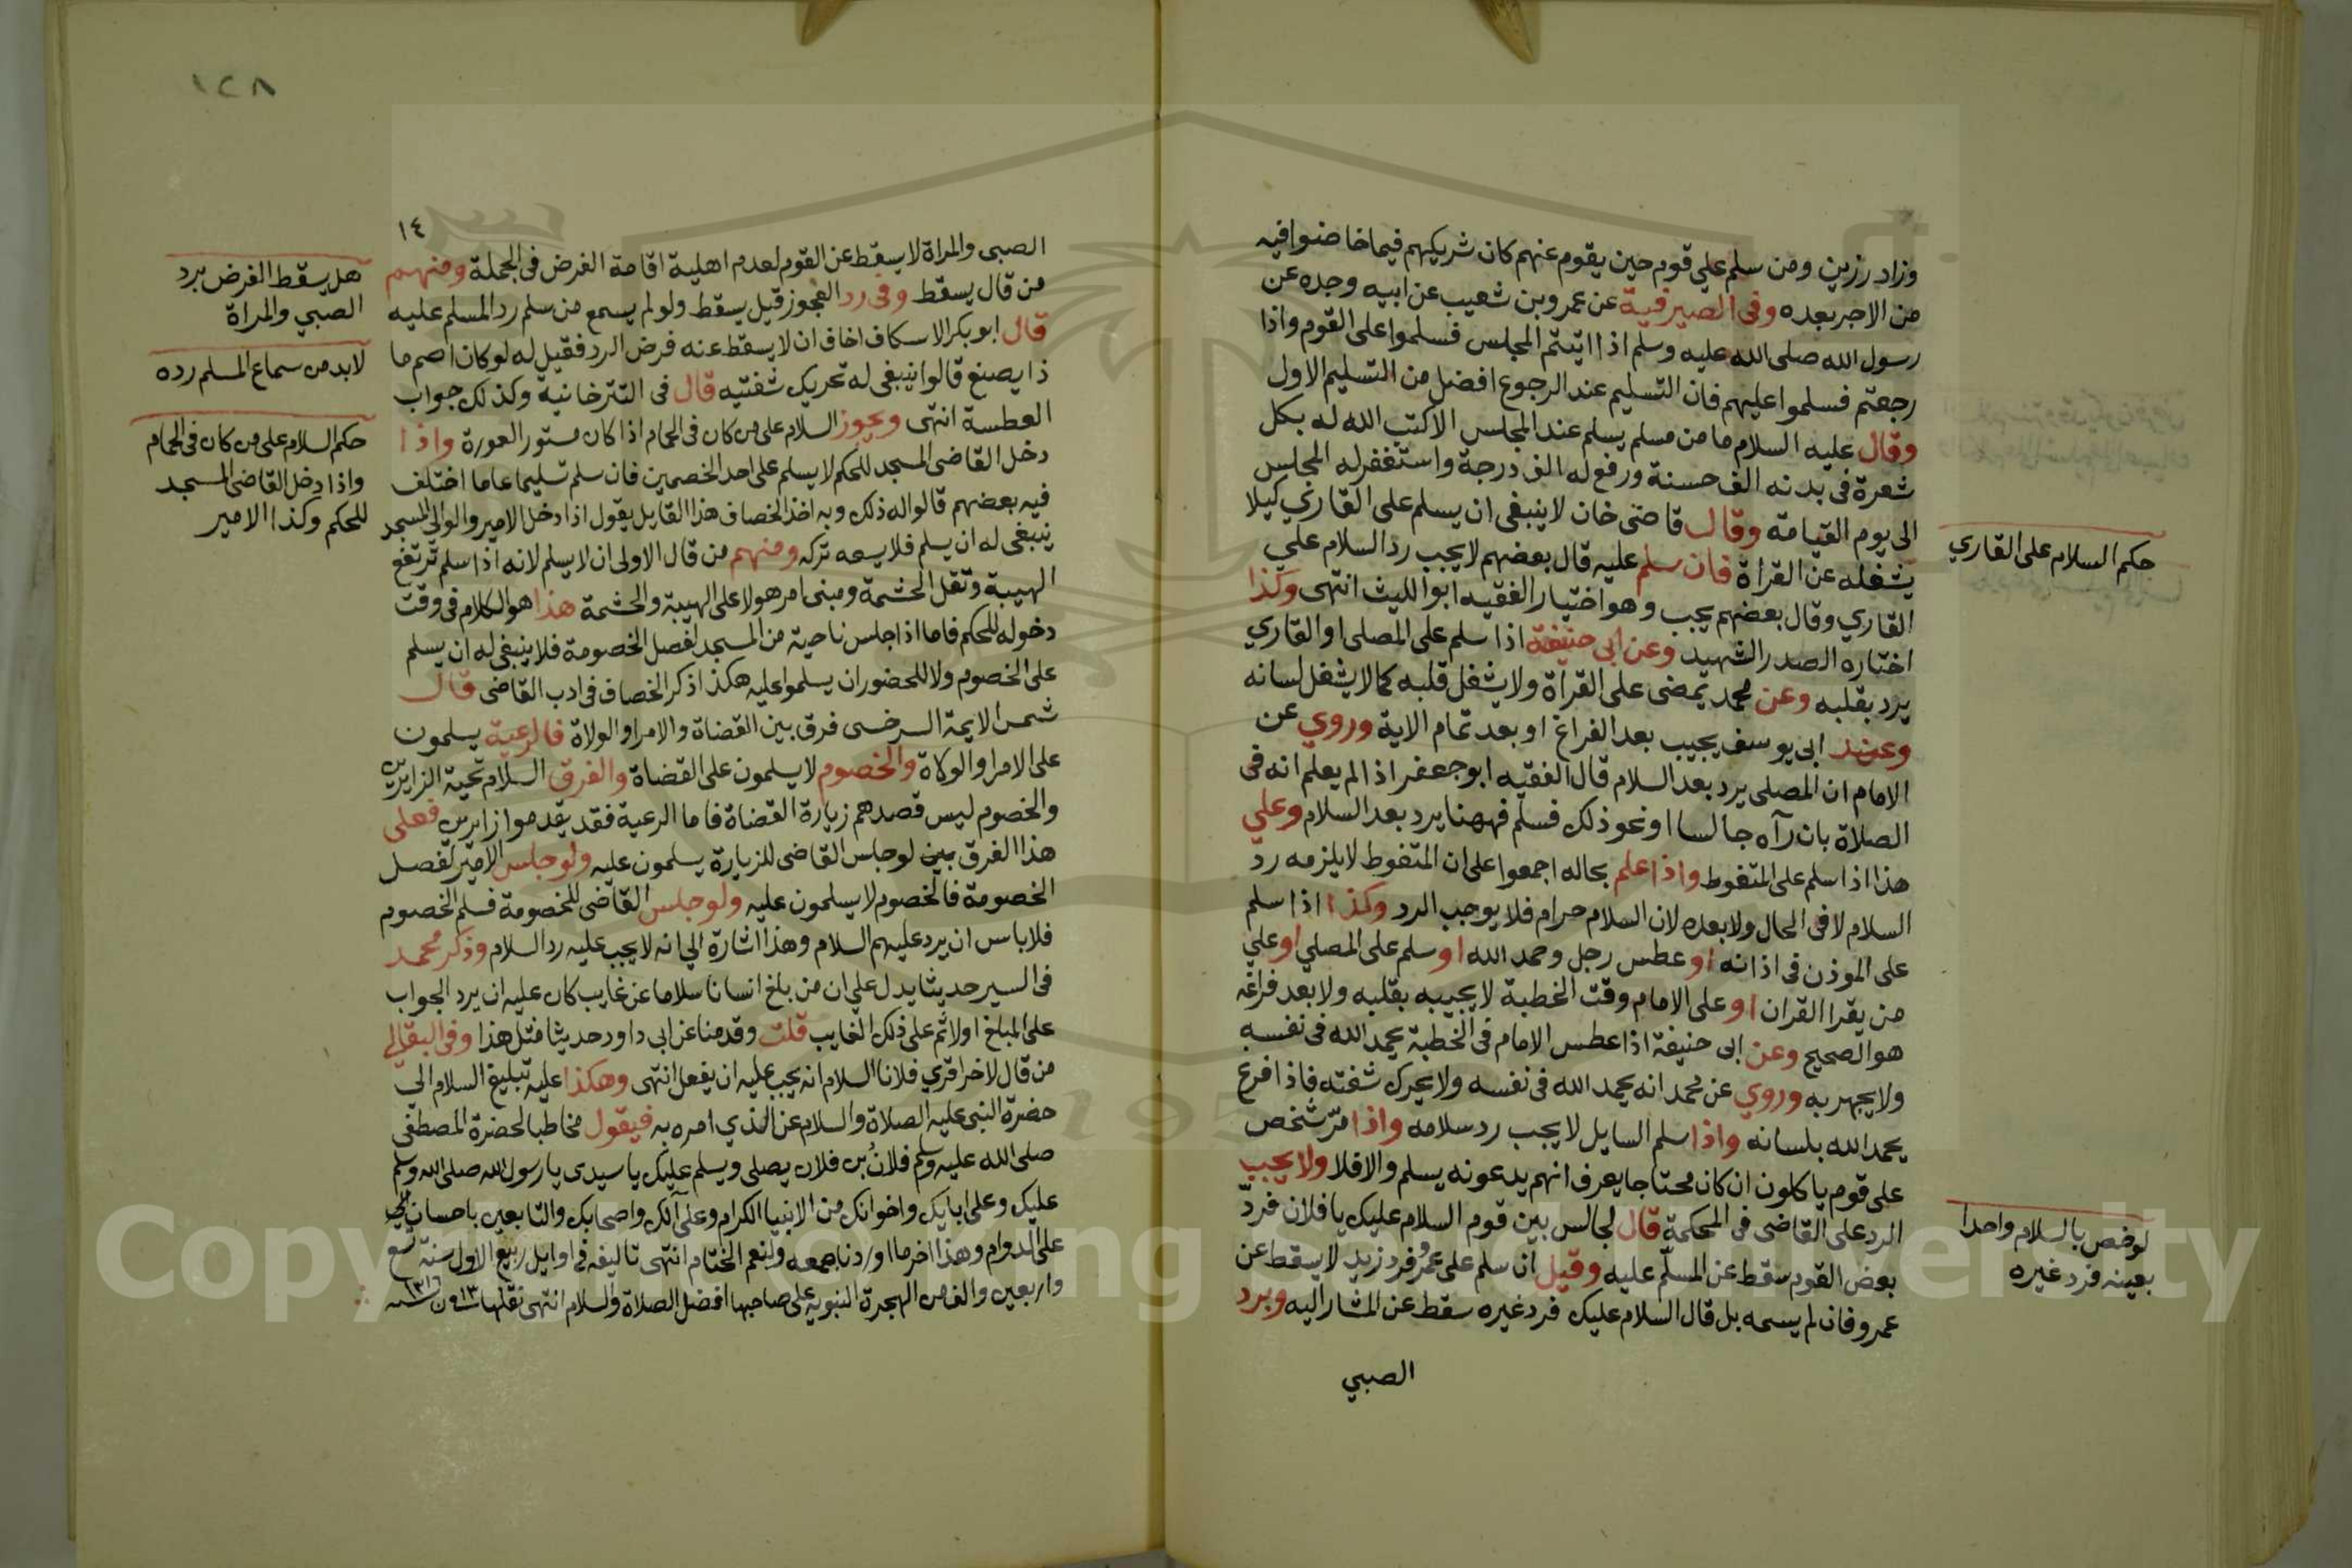 وزاد رزين ومن سلم علي قوم حين يقوم عنهم كان شريكهم فيما خاضوا فيه
من الاجر بعده وفى الصيرفية عن عمرو بن شعيب عن ابيه وجده عن
رسول الله صلى الله عليه وسلم اذا اتيتم المجلس فسلموا على القوم واذا
رجعتم فسلموا عليهم فان التسليم عند الرجوع افضل من التسليم الاول
وقال عليه السلام ما من مسلم يسلم عند المجلس الاكتب الله له بكل
شعرة فى بدنه الف حسنة ورفع له الف درجة واستغفر له المجلس
الى يوم القيامة وقال قاضى خان لا ينبغى ان يسلم على القاري كيلا
يشغله عن القراة فان سلم عليه قال بعضهم لا يجب رد السلام علي
القاري وقال بعضهم يجب وهو اختيار الفقيه ابو الليث انتهى وكذا
اختاره الصدر الشهيد وعن ابى حنيفة اذا سلم على المصلى او القاري
يرد بقلبه وعن محمد يمضى على القراة ولا يشغل قلبه كما لا يشغل لسانه
وعند ابى يوسف يجيب بعد الفراغ او بعد تمام الاية وروي عن
الامام ان المصلى يرد بعد السلام قال الفقيه ابو جعفر اذا لم يعلم انه فى
الصلاة بان رآه جالسا او نحو ذلك فسلم فههنا يرد بعد السلام وعلي
هذا اذا سلم على المتغوط واذا علم بحاله اجمعوا على ان المتغوط لا يلزمه رد
السلام لا فى الحال ولا بعده لان السلام حرام فلا يوجب الرد وكذا اذا سلم
على الموذن فى اذانه او عطس رجل وحمد الله او سلم على المصلي او علي
من يقرا القران او على الامام وقت الخطبة لا يجيبه بقلبه ولا بعد فراغه
هو الصحيح وعن ابى حنيفة اذا عطس الامام فى الخطبة يحمد الله فى نفسه
ولا يجهر به وروي عن محمد انه يحمد الله فى نفسه ولا يحرك شفته فاذا فرغ
يحمد الله بلسانه واذا سلم السايل لا يجب رد سلامه واذا مرّ شخص
على قوم ياكلون ان كان محتاجا يعرف انهم يدعونه يسلم والا فلا ولا يجب
الرد على القاضى فى المحكمة قال لجالس بين قوم السلام عليك يا فلان فردّ
بعض القوم سقط عن المسلّم عليه وقيل ان سلم على عمرو فرد زيد لا يسقط عن
عمرو فان لم يسمه بل قال السلام عليك فرد غيره سقط عن المشار اليه وبرد
الصبي
حكم السلام على القاري
لو خص بالسلام واحدا
بعينه فرد غيره
١٢٨
١٤
الصبى والمراة لا يسقط عن القوم لعدم اهلية اقامة الفرض فى الجملة ومنهم
من قال يسقط وفى رد العجوز قيل يسقط ولو لم يسمع من سلم رد المسلم عليه
قال ابو بكر الاسكاف اخاف ان لا يسقط عنه فرض الرد فقيل له لو كان اصم ما
ذا يصنع قالوا ينبغى له تحريك شفتيه قال فى التترخانية وكذلك جواب
العطسة انتهى ويجوز السلام على من كان فى الحمام اذا كان مستور العورة واذا
دخل القاضى المسجد للحكم لا يسلم على احد الخصمين فان سلم تسليما عاما اختلف
فيه بعضهم قالوا له ذلك وبه اخذ الخصاف هذا القايل يقول اذا دخل الامير والوالى المسجد
ينبغى له ان يسلم فلا يسعه تركه ومنهم من قال الاولى ان لا يسلم لانه اذا سلم ترتفع
الهيبة وتقل الحشمة ومبنى امر هولا على الهيبة والحشمة هذا هو الكلام فى وقت
دخوله للحكم فاما اذا جلس ناحية من المسجد لفصل الخصومة فلا ينبغى له ان يسلم
على الخصوم ولا للحضور ان يسلموا عليه هكذا ذكر الخصاف فى ادب القاضى قال
شمس الايمة السرخسى فرق بين القضاة والامرا والولاة فالرعية يسلمون
على الامرا والولاة والخصوم لا يسلمون على القضاة والفرق السلام تحية الزايرين
والخصوم ليس قصدهم زيارة القضاة فاما الرعية فقد يقدموا زايرين فعلى
هذا الفرق بين لو جلس القاضى للزيارة يسلمون عليه ولو جلس الامير لفصل
الخصومة فالخصوم لا يسلمون عليه ولو جلس القاضى للخصومة فسلم الخصوم
فلا باس ان يرد عليهم السلام وهذا اشارة الي انه لا يجب عليه رد السلام وذكر محمد
فى السير حديثا يدل علي ان من بلغ انسانا سلاما عن غايب كان عليه ان يرد الجواب
على المبلغ اولا ثم على ذلك الغايب قلت وقد منا عن ابى داود حديثا مثل هذا وفى البقالي
من قال لاخر اقري فلانا السلام انه يجب عليه ان يفعل انتهى وهكذا عليه تبليغ السلام الي
حضرة النبى عليه الصلاة والسلام عن الذي امره به فيقول مخاطبا لحضرة المصطفى
صلى الله عليه وسلم فلان بن فلان يصلى ويسلم عليك يا سيدى يا رسول الله صلى الله وسلم
عليك وعلى ابايك واخوانك من الانبيا الكرام وعلى آلك واصحابك والتابعين باحسان الي
على الدوام وهذا اخر ما اوردنا جمعه ولنعم الختام انتهى تاليفه فى اوايل ربيع الاول سنة تسع
واربعين والف من الهجرة النبوية على صاحبها افضل الصلاة والسلام انتهى نقلها
هل يسقط الفرض برد
الصبي والمراة
لابد من سماع المسلم رده
حكم السلام على من كان فى الحمام
واذا دخل القاضى المسجد
للحكم وكذا الامير
Copyright © King Saud University